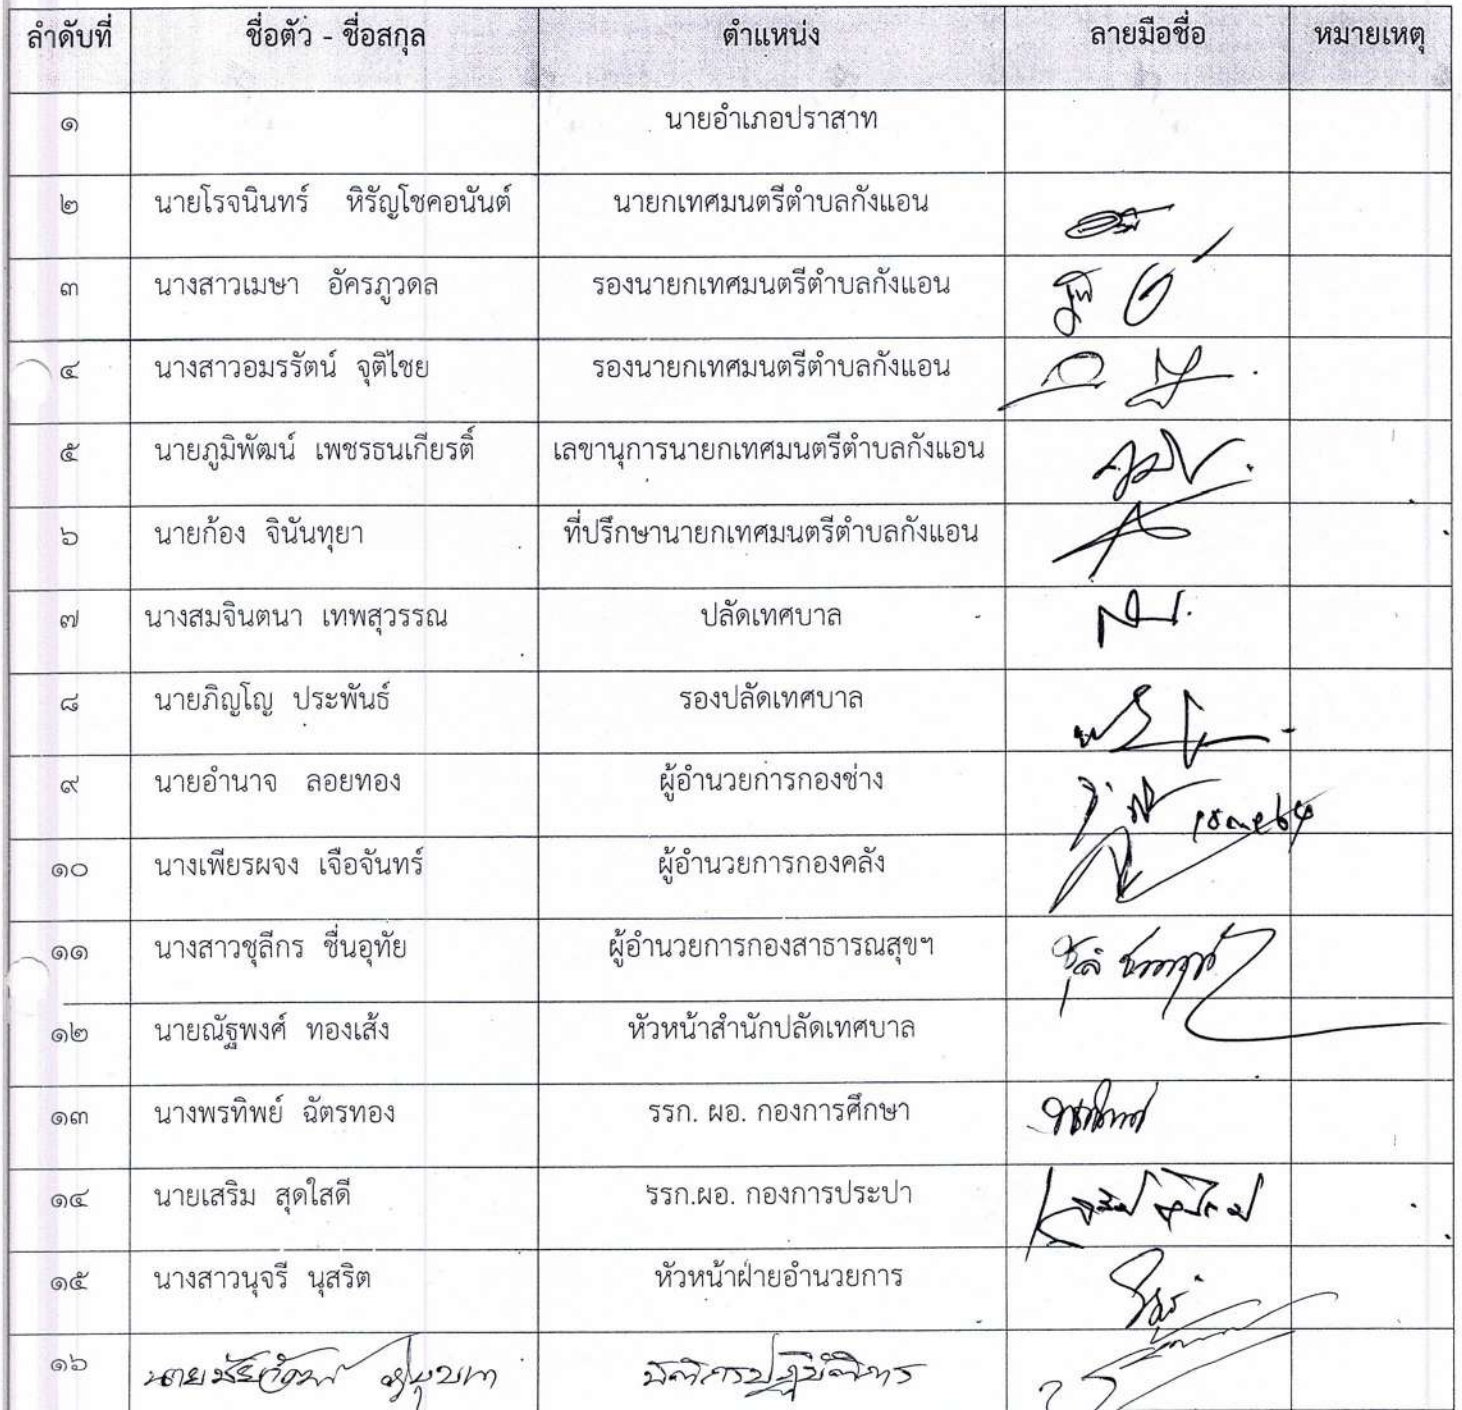 ลำดับที่ ชื่อตัว - ชื่อสกุล ตำแหน่ง ลายมือชื่อ หมายเหตุ
๑ นายอำเภอปราสาท
๒ นายโรจนินทร์ หิรัญโชคอนันต์ นายกเทศมนตรีตำบลกังแอน
๓ นางสาวเมษา อัครภูวดล รองนายกเทศมนตรีตำบลกังแอน
๔ นางสาวอมรรัตน์ จุติไชย รองนายกเทศมนตรีตำบลกังแอน
๕ นายภูมิพัฒน์ เพชรธนเกียรติ์ เลขานุการนายกเทศมนตรีตำบลกังแอน
๖ นายก้อง จินันทุยา ที่ปรึกษานายกเทศมนตรีตำบลกังแอน
๗ นางสมจินตนา เทพสุวรรณ ปลัดเทศบาล
๘ นายภิญโญ ประพันธ์ รองปลัดเทศบาล
๙ นายอำนาจ ลอยทอง ผู้อำนวยการกองช่าง
๑๐ นางเพียรผจง เจือจันทร์ ผู้อำนวยการกองคลัง
๑๑ นางสาวชุลีกร ชื่นอุทัย ผู้อำนวยการกองสาธารณสุขฯ
๑๒ นายณัฐพงศ์ ทองเส้ง หัวหน้าสำนักปลัดเทศบาล
๑๓ นางพรทิพย์ ฉัตรทอง รรก. ผอ. กองการศึกษา
๑๔ นายเสริม สุดใสดี รรก.ผอ. กองการประปา
๑๕ นางสาวนุจรี นุสริต หัวหน้าฝ่ายอำนวยการ
๑๖